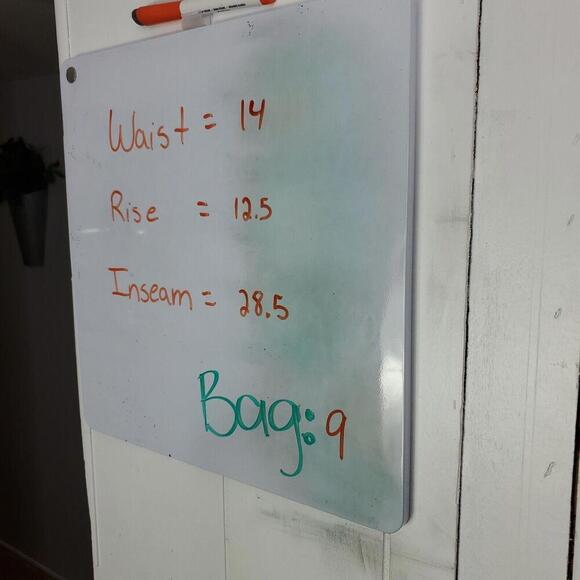 Waist = 14
Rise = 12.5
Inseam = 28.5
Bag: 9